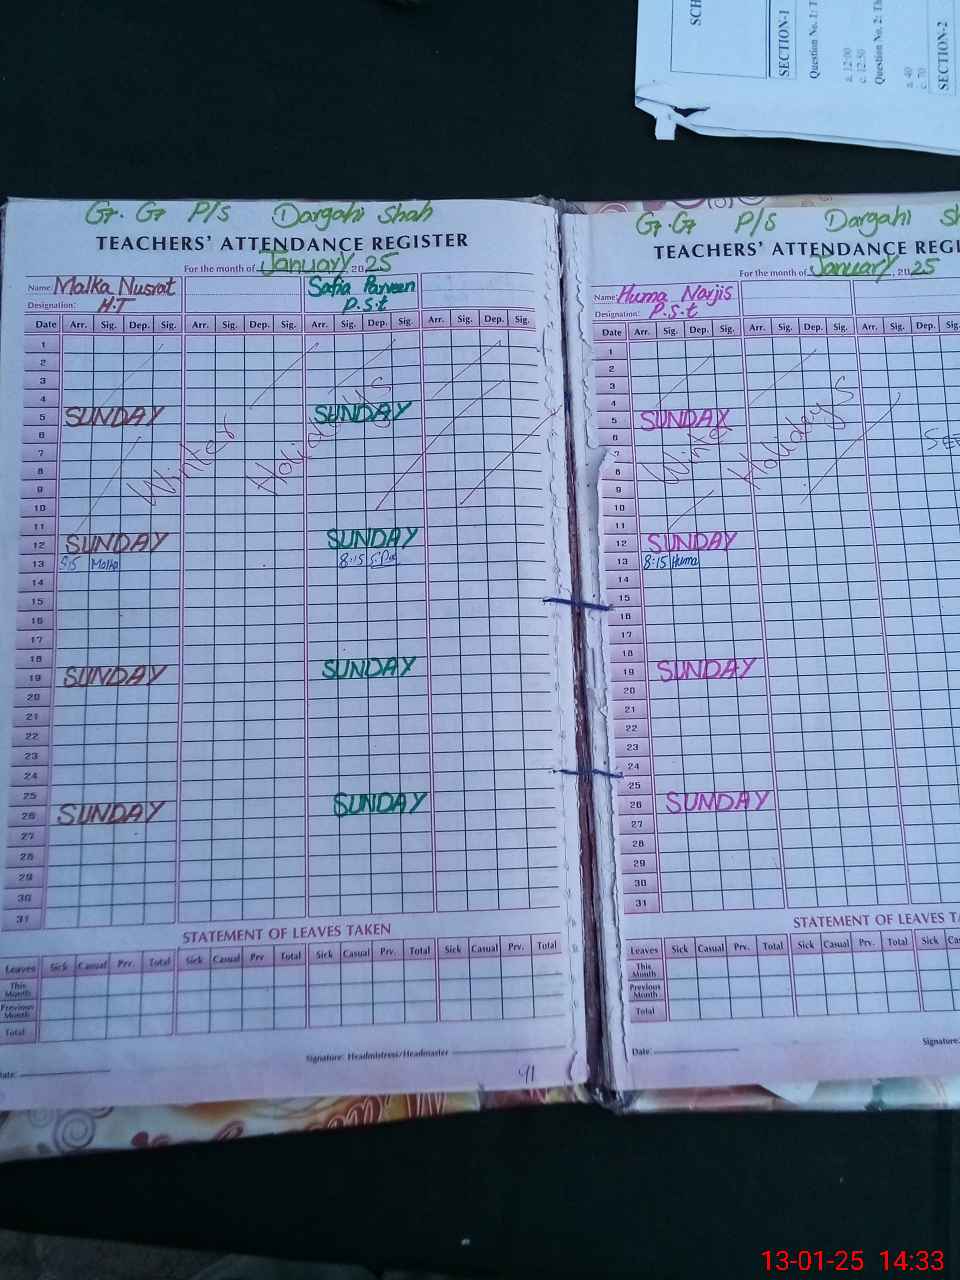 SCH
SECTION-1
Question No. 1: T
a. 12:00
c. 12:50
Question No. 2: Th
a. 40
c. 70
SECTION-2
G7. G7 P/S Dargahi Shah
TEACHERS' ATTENDANCE REGISTER
For the month of January 2025
Name: Malka Nusrat Safia Parveen
Designation: H.T P.S.t
Date Arr. Sig. Dep. Sig. Arr. Sig. Dep. Sig. Arr. Sig. Dep. Sig. Arr. Sig. Dep. Sig.
1
2
3
4
5 SUNDAY SUNDAY
6
7
8
9
10
11
12 SUNDAY SUNDAY
13 8:15 Malka 8:15
14
15
16
17
18
19 SUNDAY SUNDAY
20
21
22
23
24
25
26 SUNDAY SUNDAY
27
28
29
30
31
Winter Holidays
STATEMENT OF LEAVES TAKEN
Leaves Sick Casual Prv. Total Sick Casual Prv Total Sick Casual Prv. Total Sick Casual Prv. Total
This Month
Previous Month
Total
Signature: Headmistress/Headmaster
Date:
41
G7.G7 P/S Dargahi Sh
TEACHERS' ATTENDANCE REGI
For the month of January 2025
Name: Huma Narjis
Designation: P.S.t
Date Arr. Sig. Dep. Sig. Arr. Sig. Dep. Sig. Arr. Sig. Dep. Sig.
1
2
3
4
5 SUNDAY
6
7
8
9
10
11
12 SUNDAY
13 8:15 Huma
14
15
16
17
18
19 SUNDAY
20
21
22
23
24
25
26 SUNDAY
27
28
29
30
31
Winte Holidays
STATEMENT OF LEAVES TA
Leaves Sick Casual Prv. Total Sick Casual Prv. Total Sick Cas
This Month
Previous Month
Total
Date:
Signature:
13-01-25 14:33